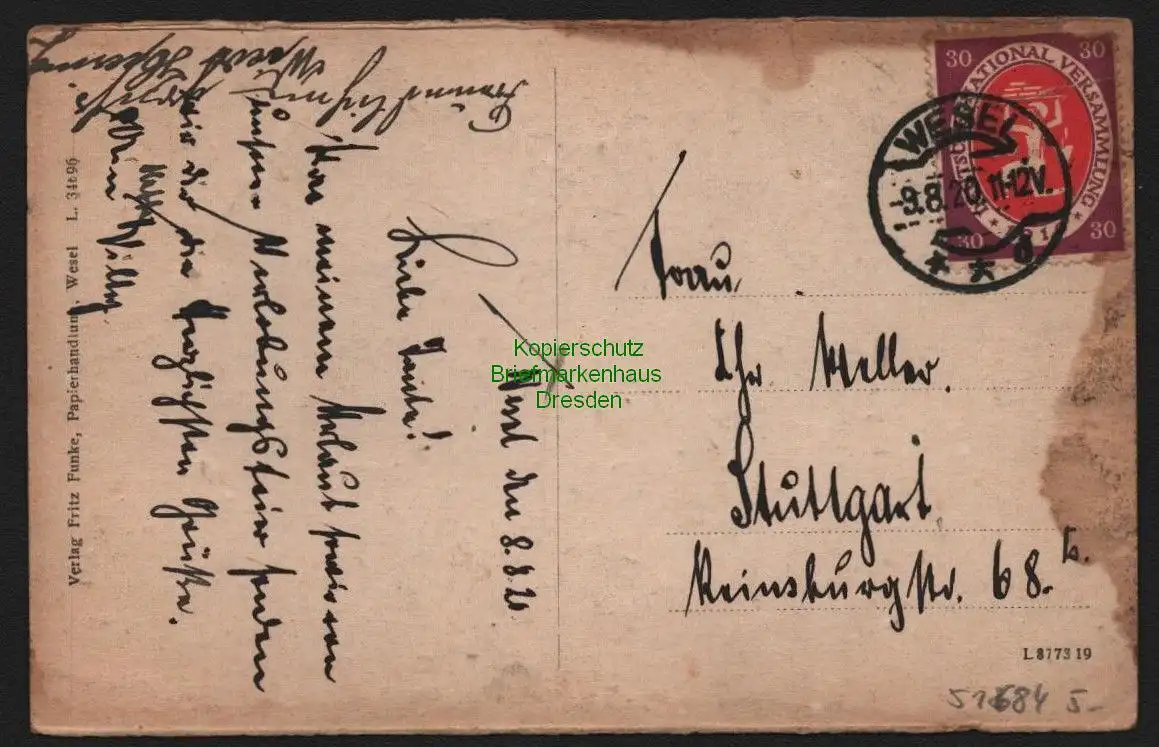 30
30
NATIONAL VERSAMMLUNG
30
30
WESEL
-9.8.20.11-12V.
Kopierschutz
Briefmarkenhaus
Dresden
Wesel den 8.8.20
Liebe Tante!
Von meinem Urlaub
unsern Verlobungsfeier senden
wir dir die herzlichsten Grüße.
Dein Willy
Frau
Chr Weller.
Stuttgart
Reinsburgstr. 68. b.
L 8773 19
51684 5-
Verlag Fritz Funke, Papierhandlung, Wesel L. 34696